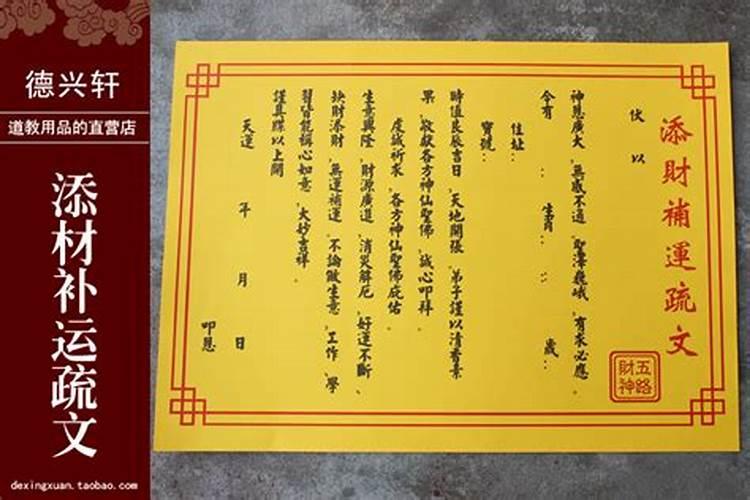 德兴轩
道教用品的直营店
添材补运疏文
dexingxuan.taobao.com
添財補運疏文
五路財神
伏以
神恩廣大，無感不通，聖澤巍峨，有求必應。
今有：生肖：：歲：
住址：
寶號：
時值良辰吉日，天地開張，弟子謹以清香素
果，敬獻各方神仙聖佛，誠心叩拜
虔誠祈求，各方神仙聖佛庇佑
生意興隆，財源廣進，消災解厄，好運不斷、
缺財添財，無運補運，不論做生意，工作，學
習皆能稱心如意，大妙吉祥。
謹具牒以上聞
天運 年 月 日
叩恩